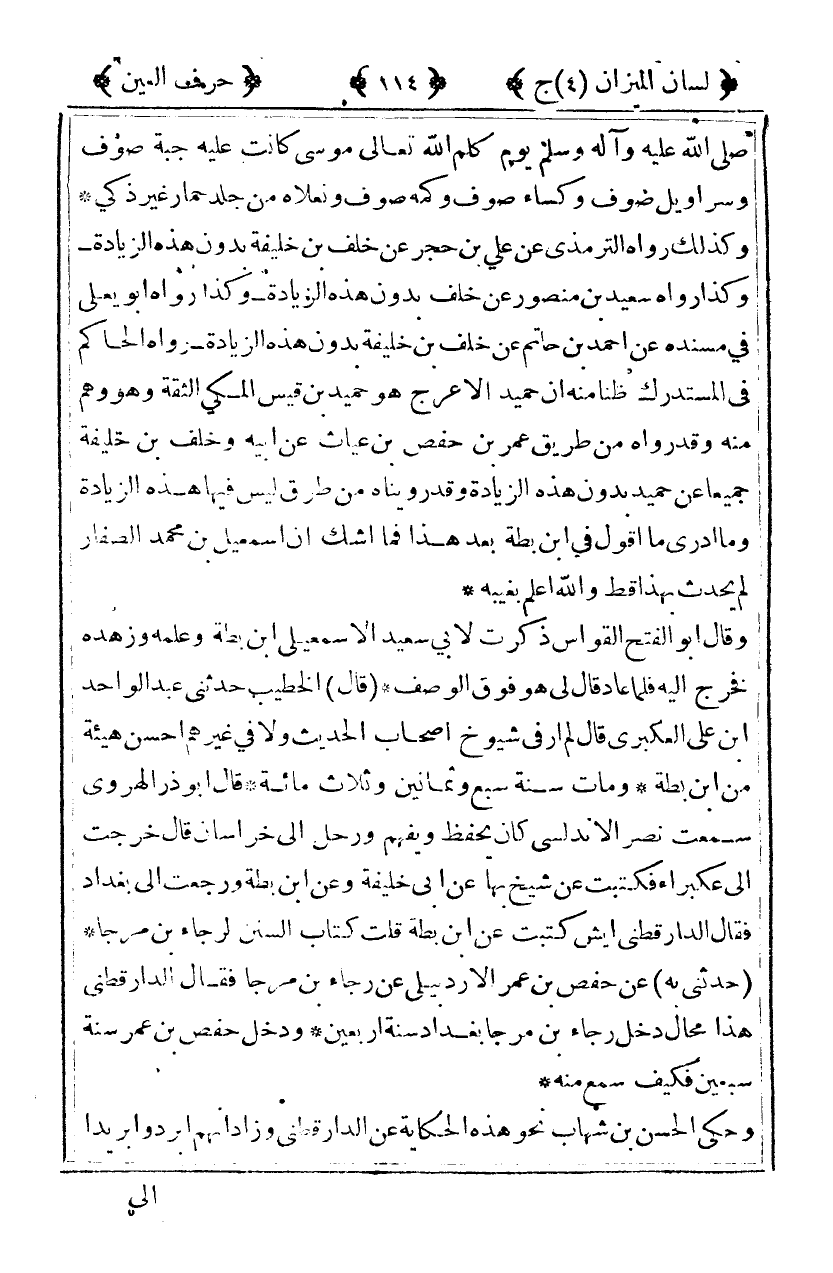 ﴿ لسان الميزان (٤) ج ﴾ ﴿ ١١٤ ﴾ ﴿ حرف العين ﴾
صلى الله عليه وآله وسلم يوم كلم الله تعالى موسى كانت عليه جبة صوف
وسراويل صوف وكساء صوف وكمه صوف ونعلاه من جلد حمار غير ذكي *
وكذلك رواه الترمذى عن علي بن حجر عن خلف بن خليفة بدون هذه الزيادة ـ
وكذا رواه سعيد بن منصور عن خلف بدون هذه الزيادة ـ وكذا رواه ابو يعلى
في مسنده عن احمد بن حاتم عن خلف بن خليفة بدون هذه الزيادة ـ رواه الحاكم
فى المستدرك ظنا منه ان حميد الاعرج هو حميد بن قيس المكي الثقة وهو وهم
منه وقد رواه من طريق عمر بن حفص بن غياث عن ابيه وخلف بن خليفة
جميعا عن حميد بدون هذه الزيادة وقد رويناه من طرق ليس فيها هذه الزيادة
وما ادرى ما اقول في ابن بطة بعد هذا فما اشك ان اسمعيل بن محمد الصفار
لم يحدث بهذا قط والله اعلم بغيبه *
وقال ابو الفتح القواس ذكرت لابي سعيد الاسمعيلى ابن بطة وعلمه وزهده
فخرج اليه فلما عاد قال لى هو فوق الوصف * (قال) الخطيب حدثنى عبد الواحد
ابن على العكبرى قال لم ار فى شيوخ اصحاب الحديث ولا في غيرهم احسن هيئة
من ابن بطة * ومات سنة سبع وثمانين وثلاث مائة * قال ابو ذر الهروى
سمعت نصر الاندلسى كان يحفظ ويفهم ورحل الى خراسان قال خرجت
الى عكبراء فكتبت عن شيخ بها عن ابى خليفة وعن ابن بطة ورجعت الى بغداد
فقال الدارقطنى ايش كتبت عن ابن بطة قلت كتاب السنن لرجاء بن مرجا *
(حدثنى به) عن حفص بن عمر الاردبيلى عن رجاء بن مرجا فقال الدارقطنى
هذا محال دخل رجاء بن مرجا بغداد سنة اربعين * ودخل حفص بن عمر سنة
سبعين فكيف سمع منه *
وحكى الحسن بن شهاب نحو هذه الحكاية عن الدارقطنى وزاد انهم ابردوا بريدا
الى